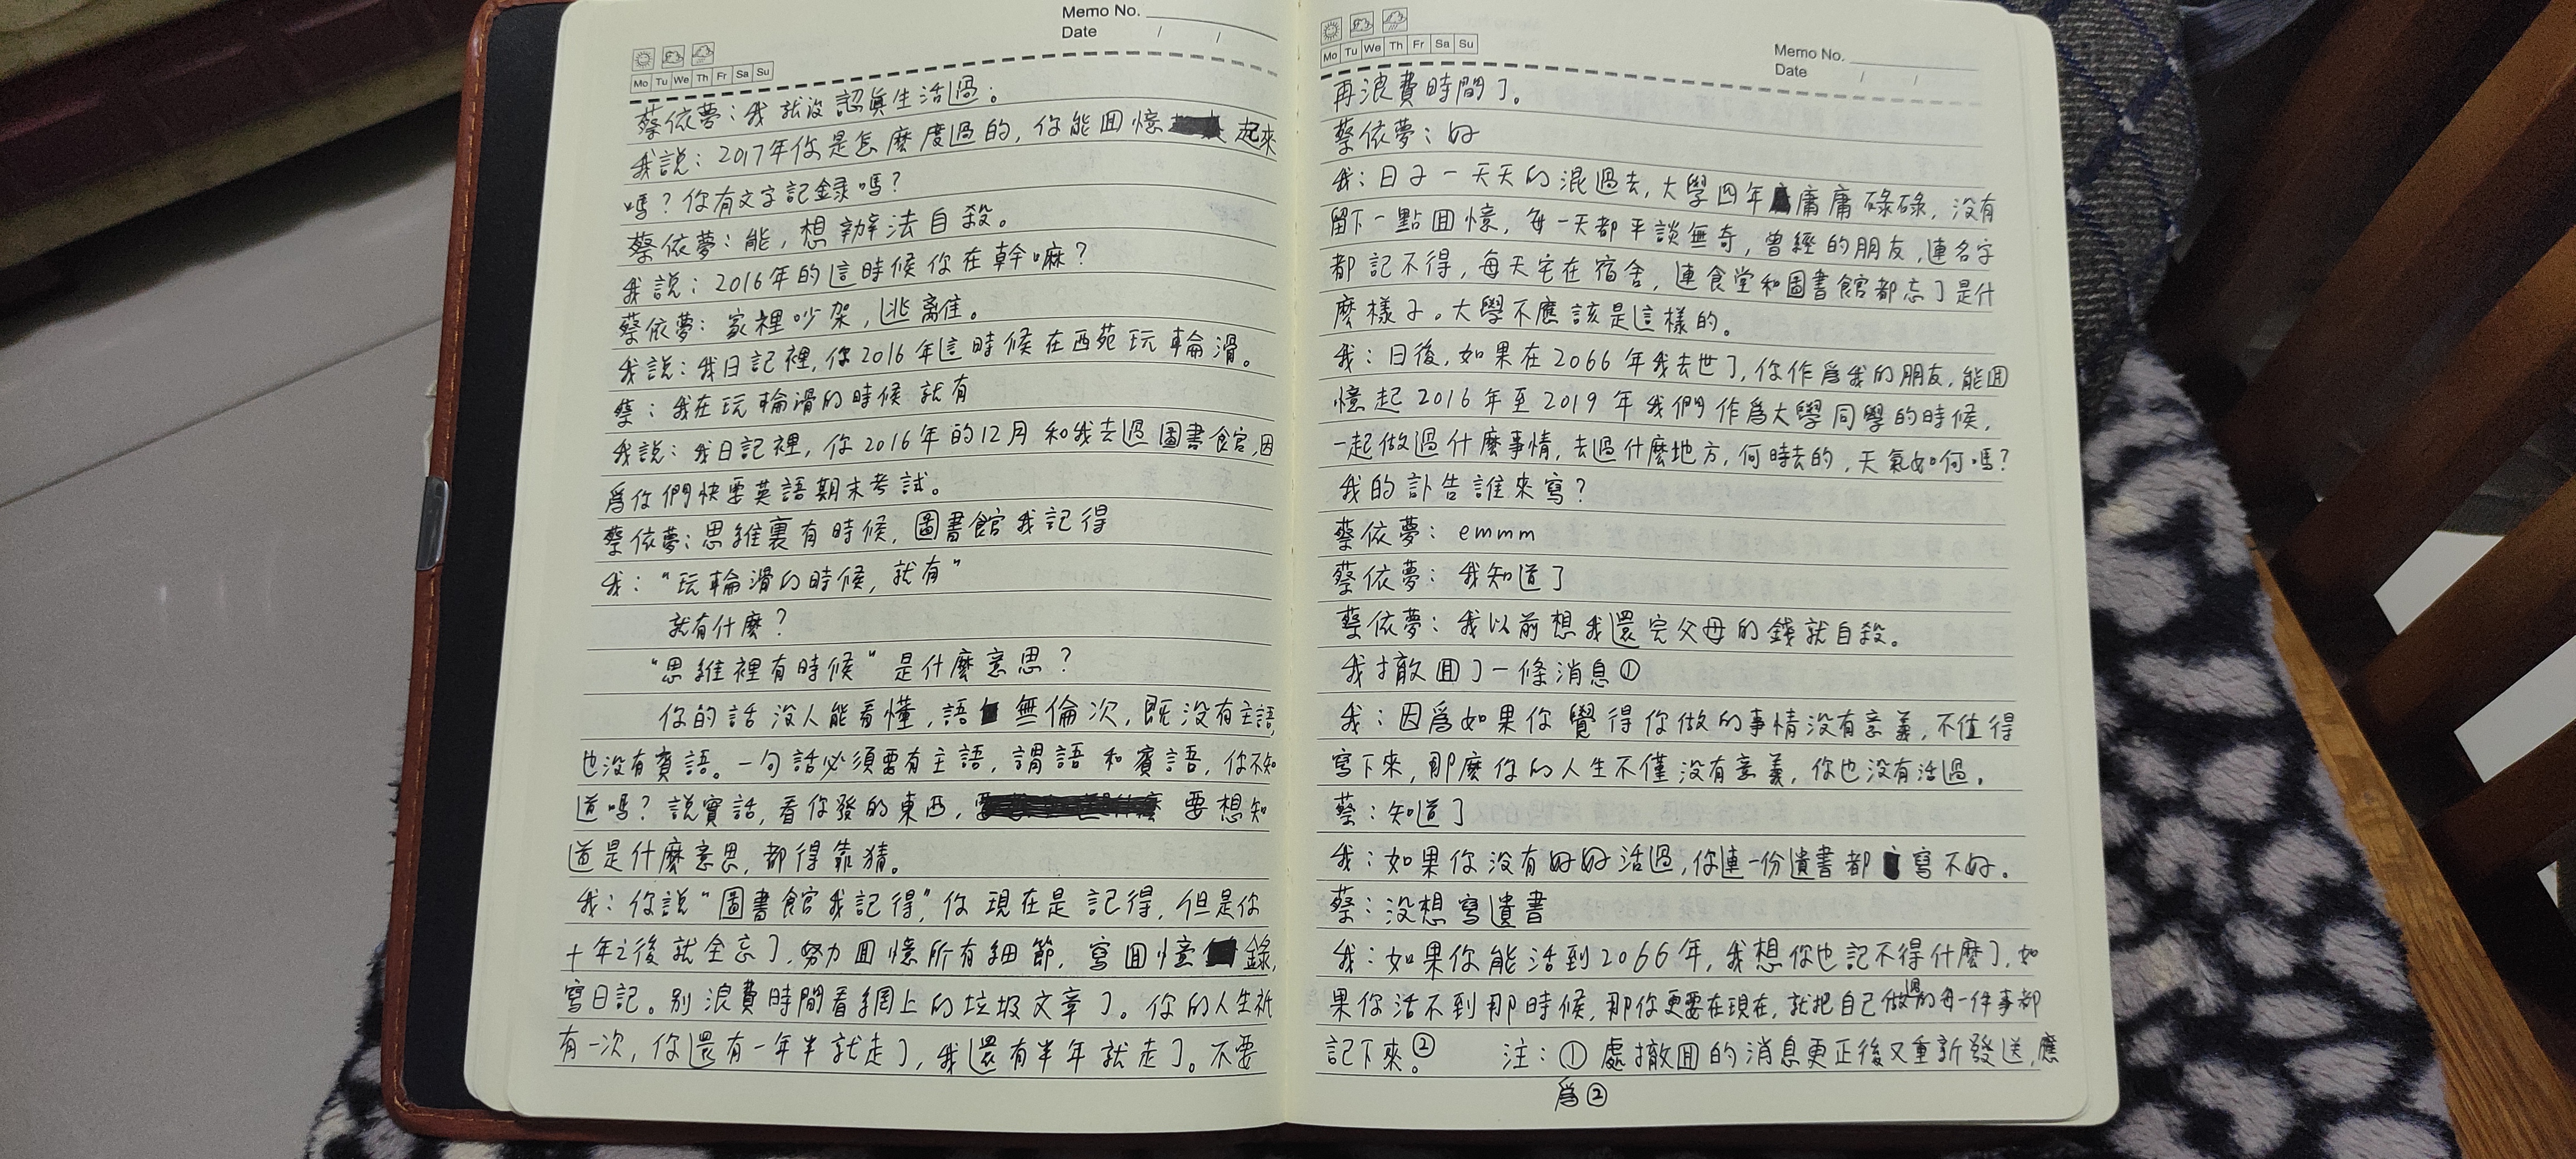 Memo No.
Date / /
Mo Tu We Th Fr Sa Su
蔡依夢：我就沒認眞生活過。
我説：2017年你是怎麽度過的，你能囬憶起來
嗎？你有文字記録嗎？
蔡依夢：能，想辦法自殺。
我説：2016年的這時候你在幹嘛？
蔡依夢：家裡吵架，逃離。
我説：我日記裡，你2016年這時候在西苑玩輪滑。
蔡：我在玩輪滑的時候就有
我説：我日記裡，你2016年的12月和我去過圖書館，因
爲你們快要英語期末考試。
蔡依夢：思維裏有時候，圖書館我記得
我：“玩輪滑的時候，就有”
就有什麽？
“思維裡有時候”是什麽意思？
你的話沒人能看懂，語無倫次，既沒有主語，
也沒有賓語。一句話必須要有主語，謂語和賓語，你不知
道嗎？説實話，看你發的東西，要想知
道是什麽意思，都得靠猜。
我：你説“圖書館我記得”，你現在是記得，但是你
十年之後就全忘了，努力囬憶所有細節，寫囬憶錄，
寫日記。别浪費時間看網上的垃圾文章了。你的人生衹
有一次，你還有一年半就走了，我還有半年就走了。不要
Mo Tu We Th Fr Sa Su
Memo No.
Date / /
再浪費時間了。
蔡依夢：好
我：日子一天天的混過去，大學四年庸庸碌碌，沒有
留下一點囬憶，每一天都平談無奇，曾經的朋友，連名字
都記不得，每天宅在宿舍，連食堂和圖書館都忘了是什
麽樣子。大學不應該是這樣的。
我：日後，如果在2066年我去世了，你作爲我的朋友，能囬
憶起2016年至2019年我們作爲大學同學的時候，
一起做過什麽事情，去過什麽地方，何時去的，天氣如何嗎？
我的訃告誰來寫？
蔡依夢：emmm
蔡依夢：我知道了
蔡依夢：我以前想我還完父母的錢就自殺。
我撤囬了一條消息①
我：因爲如果你覺得你做的事情沒有意義，不值得
寫下來，那麽你的人生不僅沒有意義，你也沒有活過。
蔡：知道了
我：如果你沒有好好活過，你連一份遺書都寫不好。
蔡：沒想寫遺書
我：如果你能活到2066年，我想你也記不得什麽了，如
果你活不到那時候，那你更要在現在，就把自己做過的每一件事都
記下來。② 注：①處撤囬的消息更正後又重新發送，應
爲②